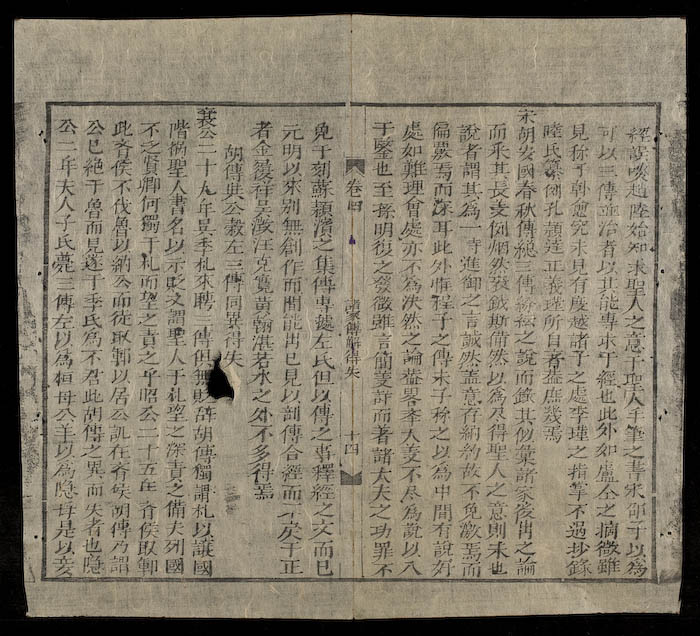 經誤啖趙陸始知求聖人之意于聖人手筆之書宋邵子以為
可以三傳並治者以其能專求于經也此外如盧仝之摘微雖
見称于韓愈究未見有度越諸子之處李瑾之指掌不過抄錄
陸氏纂例孔穎達正義瑾所自者蓋庶幾焉
宋胡安國春秋傳總三傳紛紜之說而錄其似彙諸家後出之論
而采其長美例炳然袞鉞斯備然以為尽得聖人之意則未也
說者謂其為一時進御之言誠然盖意存納約故不免激焉而
偏蔽焉而深耳此外惟程子之傳朱子称之以為中間有說好
處如難理會處亦不為決然之論盖畧本大美不尽為說以入
于鑿也至孫明復之發微雖言簡美詳而著諸大夫之功罪不
卷四
諸家傳觧得失
十四
免于刻蘇穎濱之集傳專違左氏但以傳之事釋經之文而已
元明以來別無創作而間能出己見以剖傳合經而不戾于正
者金履祥吳澂汪克寬黃翰湛若水之外不多得焉
胡傳與公穀左三傳同異得失
襄公二十九年吳季札來聘三傳但無貶辞胡傳獨謂札以讓國
階禍聖人書名以示貶又謂聖人于札望之深責之備夫列國
不乏賢卿何獨于札而望之責之乎昭公二十五年斉侯取鄆
此斉侯不伐魯以納公而徒取鄆以居公訊在斉侯胡傳乃謂
公已絕于魯而見逐于季氏為不君此胡傳之異而失者也隱
公二年夫人子氏薨三傳左以為桓母公羊以為隱母是以妾